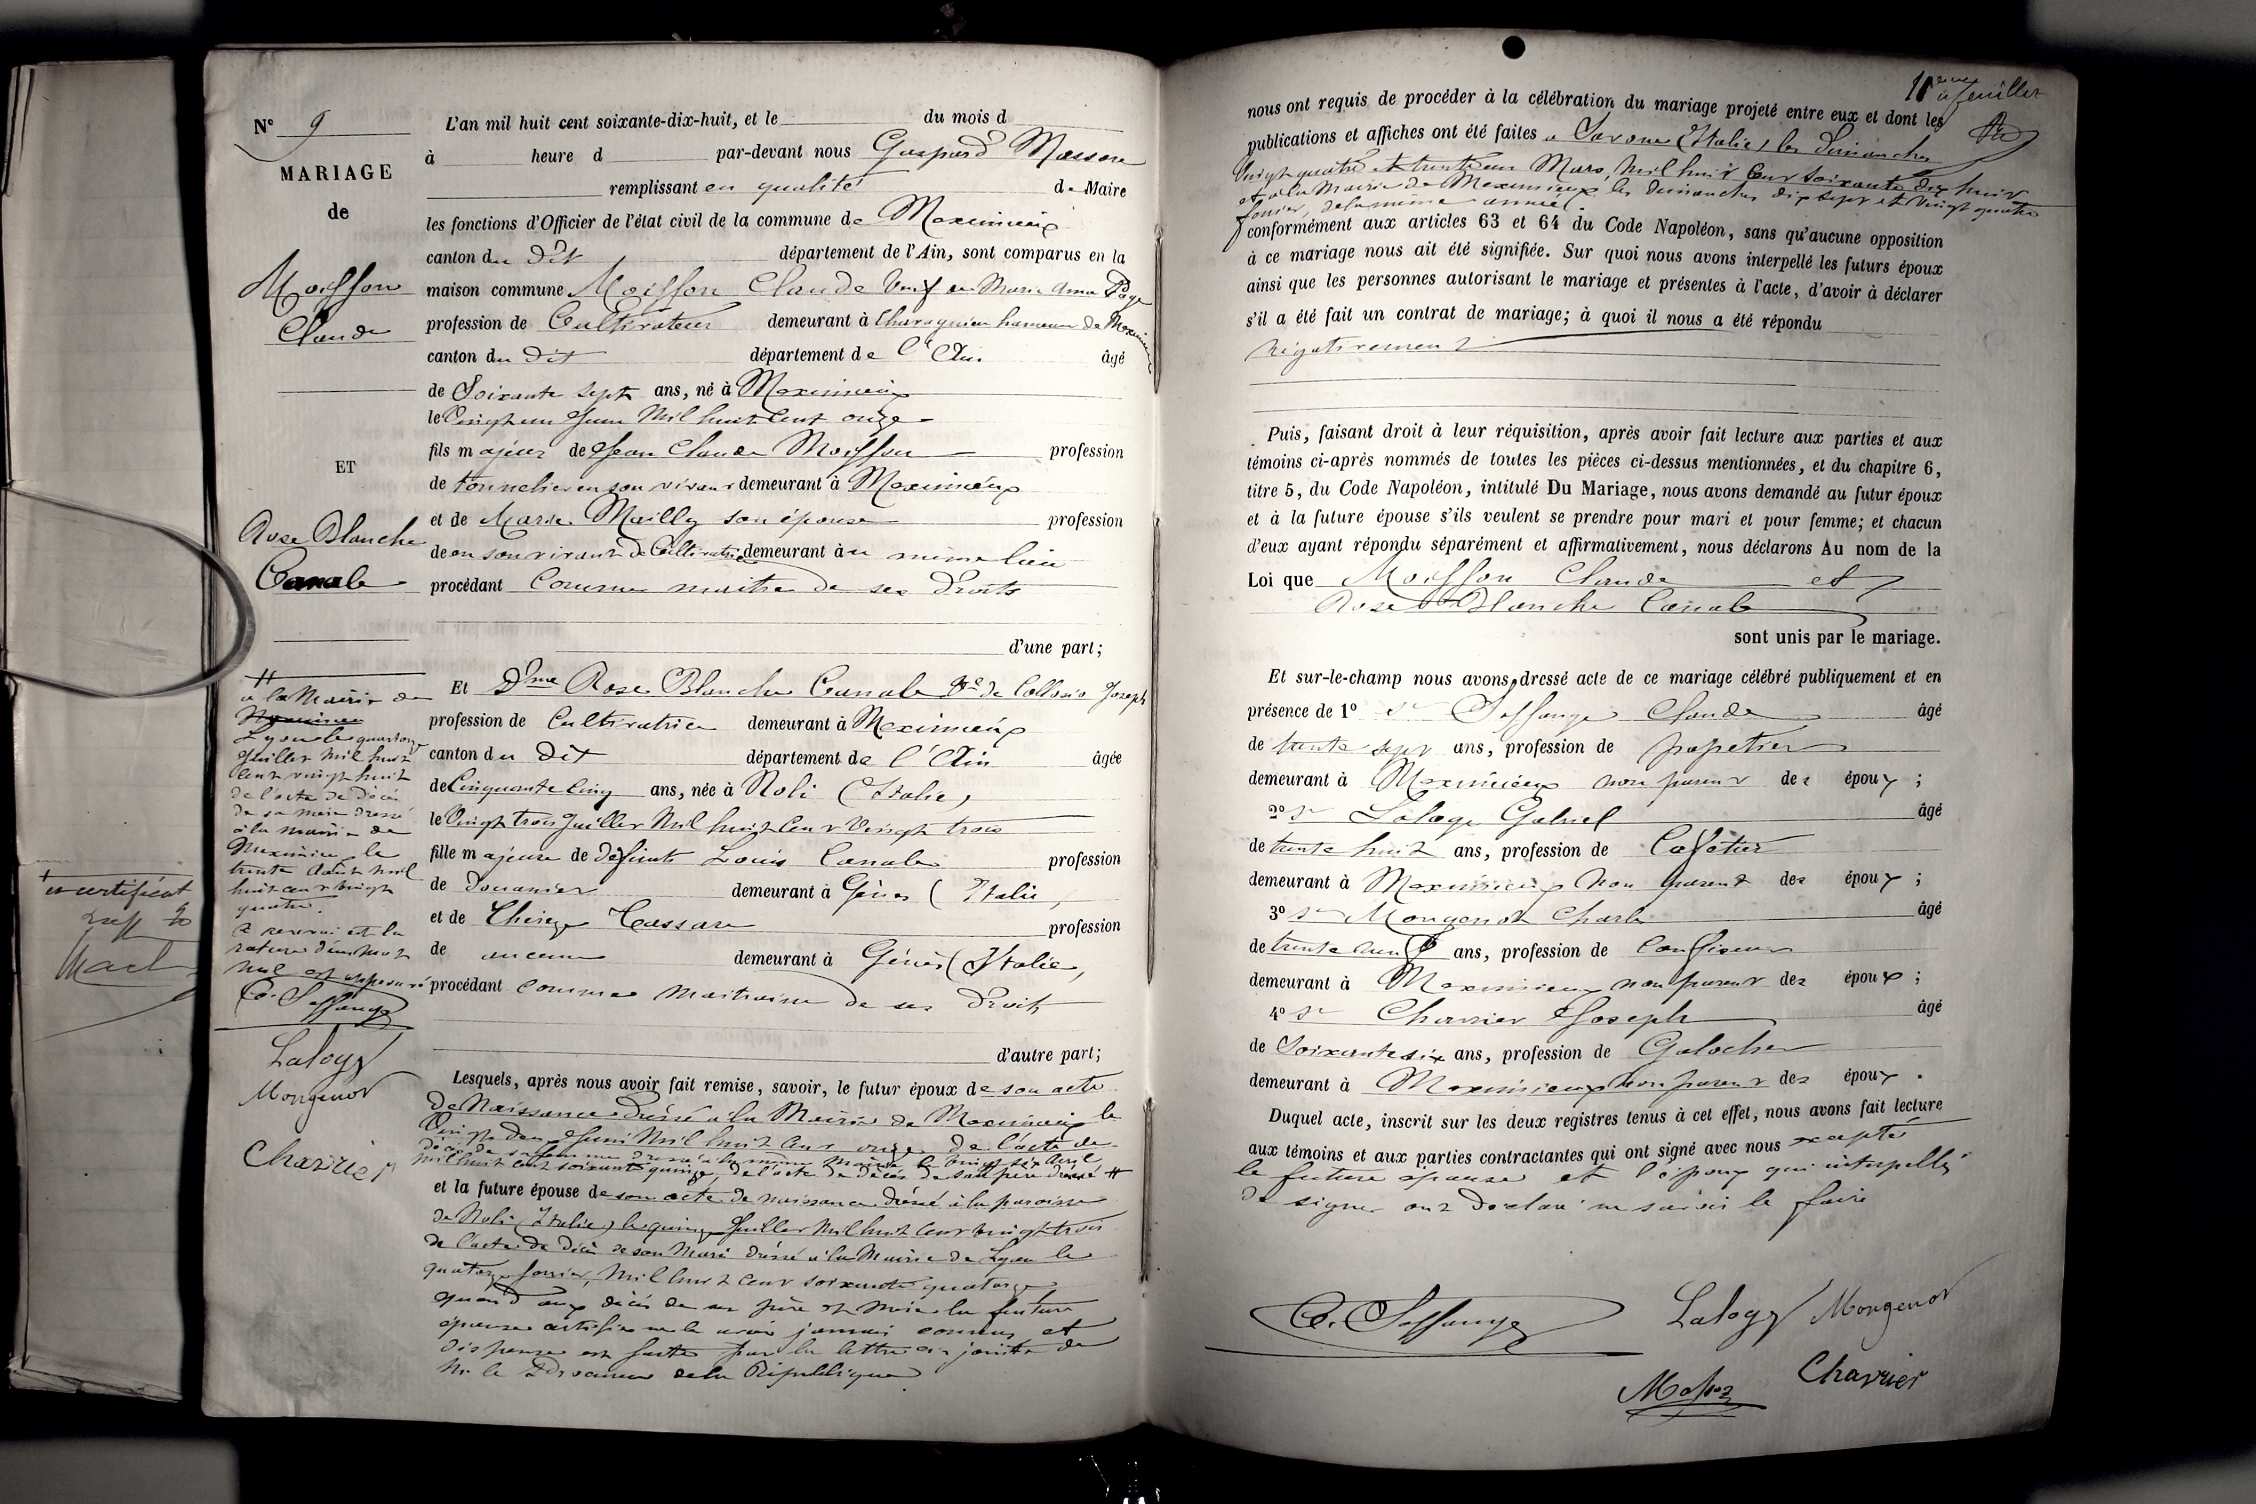 N° 9
MARIAGE
de
Moisson
Claude
ET
Rose Blanche
Canale
L'an mil huit cent soixante-dix-huit, et le du mois d
à heure d par-devant nous Gaspard
remplissant en qualité de Maire
les fonctions d'Officier de l'état civil de la commune de Meximieux
canton du dit département de l'Ain, sont comparus en la
maison commune Moisson Claude Veuf de Marie Anne Page
profession de Cultivateur demeurant à Charagnieu hameau de Meximieux
canton du dit département de l'Ain âgé
de Soixante sept ans, né à Meximieux
le Vingt un Juin Mil huit Cent onze
fils majeur de Jean Claude Moisson profession
de tonnelier en son vivant demeurant à Meximieux
et de Marie Mailly son épouse profession
de en son vivant de Cultivatrice demeurant à u même lieu
procédant Comme maitre de ses Droits
d'une part;
Et Dme Rose Blanche Canale Ve de Joseph
profession de Cultivatrice demeurant à Meximieux
canton du dit département de l'Ain âgée
de Cinquante Cinq ans, née à Noli (Italie)
le Vingt trois Juillet Mil huit Cent Vingt trois
fille majeure de défunts Louis Canale profession
de Douanier demeurant à Gênes (Italie)
et de Thérèze profession
de aucune demeurant à Gênes (Italie)
procédant Comme Maitraisse de ses Droits
d'autre part;
Lesquels, après nous avoir fait remise, savoir, le futur époux de son acte
de Naissance dressé à la Mairie de Meximieux le
Vingt deux Juin Mil huit Cent onze de l'acte de
décès de sa femme dressé à la même Mairie le Vingt six Avril
mil huit cent soixante quinze, de l'acte de décès de son père dressé #
et la future épouse de son acte de naissance dressé à la paroisse
de Noli (Italie) le quinze Juillet Mil huit Cent vingt trois
de l'acte de décès de son Mari dressé à la Mairie de Lyon le
quatorze février, Mil huit Cent soixante quatorze
quand aux décès de ses père et mère la future
épouse certifie ne le avoir jamais connus et
dispense est faite par la lettre ci jointe de
Mr le Procureur de la République
#
à la Mairie de
Lyon le quatorze
Juillet Mil huit
Cent vingt huit
de l'acte de décès
de sa mère dressé
à la mairie de
Meximieux le
trente Août mil
huit cent vingt
quatre.
Le renvoi et la
rature d'un mot
nul est approuvé
C. Seffange
Lalogy
Mongenot
Charrier
certificat
nous ont requis de procéder à la célébration du mariage projeté entre eux et dont les
publications et affiches ont été faites à Savone (Italie) les dimanches
Vingt quatre et trente un Mars, Mil huit Cent soixante dix huit
et à la Mairie de Meximieux les dimanches dix sept et Vingt quatre
février, de la même année
conformément aux articles 63 et 64 du Code Napoléon, sans qu'aucune opposition
à ce mariage nous ait été signifiée. Sur quoi nous avons interpellé les futurs époux
ainsi que les personnes autorisant le mariage et présentes à l'acte, d'avoir à déclarer
s'il a été fait un contrat de mariage; à quoi il nous a été répondu
négativement
Puis, faisant droit à leur réquisition, après avoir fait lecture aux parties et aux
témoins ci-après nommés de toutes les pièces ci-dessus mentionnées, et du chapitre 6,
titre 5, du Code Napoléon, intitulé Du Mariage, nous avons demandé au futur époux
et à la future épouse s'ils veulent se prendre pour mari et pour femme; et chacun
d'eux ayant répondu séparément et affirmativement, nous déclarons Au nom de la
Loi que Moisson Claude et
Rose Blanche Canale
sont unis par le mariage.
Et sur-le-champ nous avons dressé acte de ce mariage célébré publiquement et en
présence de 1° Sr Seffange Claude âgé
de trente sept ans, profession de papetier
demeurant à Meximieux non parent des époux ;
2° Sr Laloge Gabriel âgé
de trente huit ans, profession de Cafetier
demeurant à Meximieux non parent des époux ;
3° Sr Mongenot Charle âgé
de trente ans, profession de Confiseur
demeurant à Meximieux non parent des époux ;
4° Sr Charrier Joseph âgé
de Soixante six ans, profession de Galocher
demeurant à Meximieux non parent des époux .
Duquel acte, inscrit sur les deux registres tenus à cet effet, nous avons fait lecture
aux témoins et aux parties contractantes qui ont signé avec nous excepté
le future épouse et l'époux qui interpellés
de signer ont déclaré ne savoir le faire
C. Seffange
Lalogy
Mongenot
Charrier